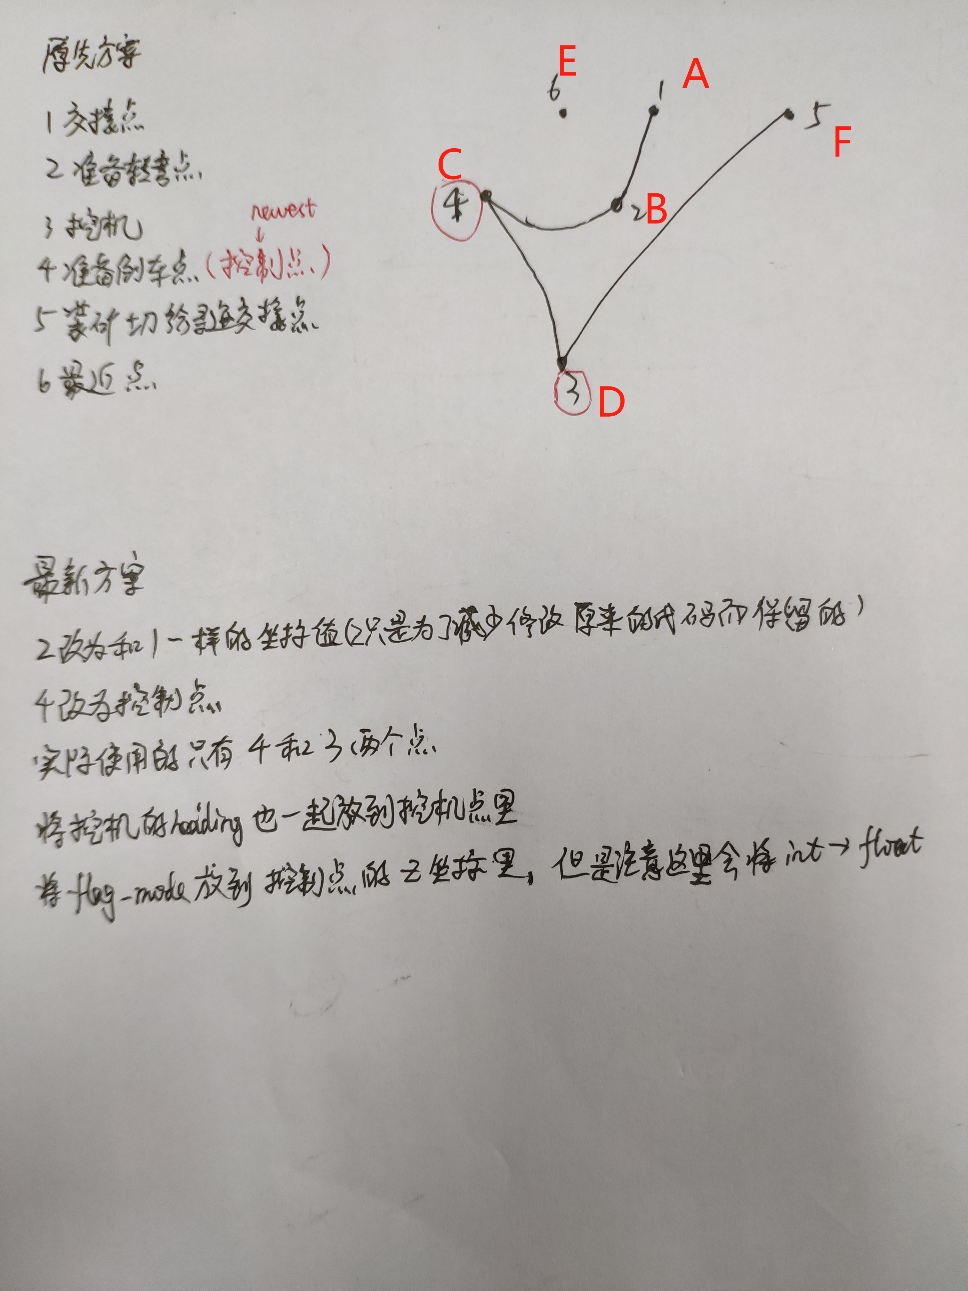 原先方案
1 交接点
2 准备转弯点
3 挖机
newest
4 准备倒车点 (控制点)
5 装矿切给到遥交接点
6 最近点
E
6
1
A
5
F
C
4
2
B
3
D
最新方案
2改为和1一样的坐标值(2只是为了减少修改原来的代码而保留的)
4改为控制点
实际使用的只有4和3两个点
将挖机的heading也一起放到挖机点里
将flag-mode放到控制点的z坐标里，但是注意这里会将int→float